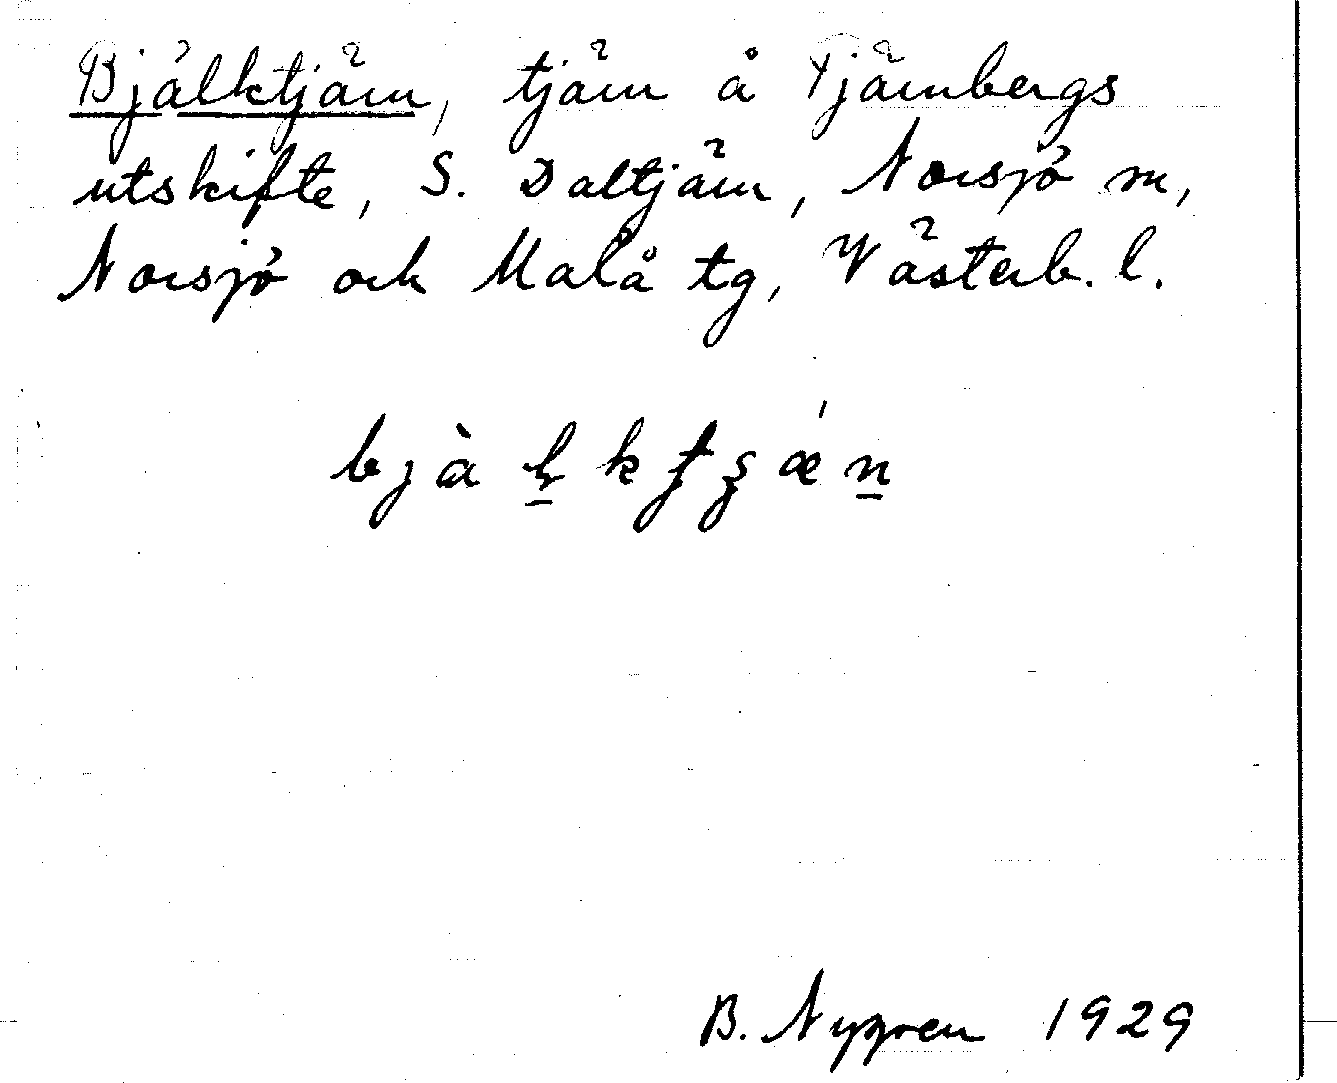 Bjälktjärn, tjärn å Tjärnbergs
utskifte, S. Daltjärn, Norsjö sn,
Norsjö och Malå tg, Västerb. l.
bjàḻkʈʂǽṉ
B. Nygren 1929